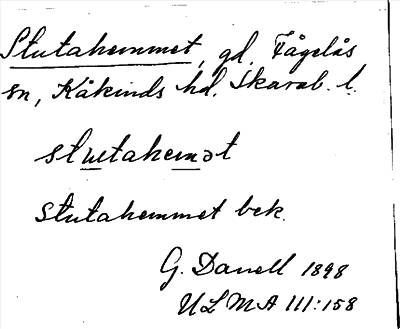 Stutahemmet, gd, Fågelås
sn, Kåkinds hd. Skarab. l.
stutahemət
Stutahemmet bek.
G. Danell 1898
ULMA 111:158